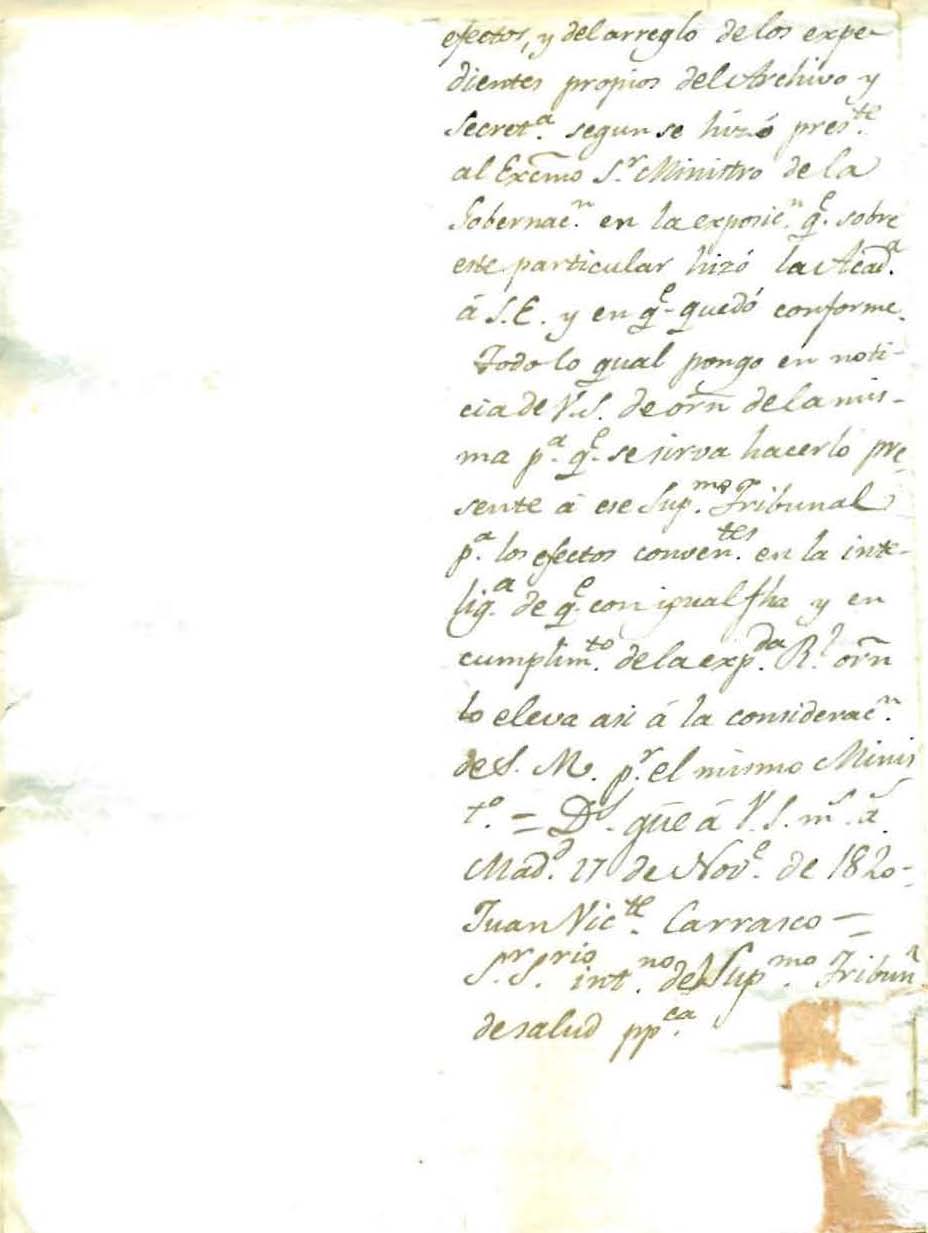 efectos, y del arreglo de los expe-
dientes propios del Archivo y
Secret.ª segun se hizó pres.te
al Excmo S.r Ministro de la
Gobernac.n en la exposic.n q.e sobre
este particular hizó la Acad.ª
á S.E. y en q.e quedó conforme.
Todo lo qual pongo en noti-
cia de V.S. de orñ de la mis-
ma p.ª q.e se sirva hacerlo pre
sente á ese Sup.mo Tribunal
p.ª los efectos conven.tes en la inte-
lig.ª de q.e con igual fha y en
cumplim.to de la exp.da R.l orñ
lo eleva asi á la considerac.n
de S. M. p.r el mismo Minis
t.o = D.s gũe á V.S. m.s a.s
Mad.d 17 de Nov.e de 1820-
Juan Vic.te Carrasco =
S.r S.rio int.no del Sup.mo Tribun.l
de salud pp.ca